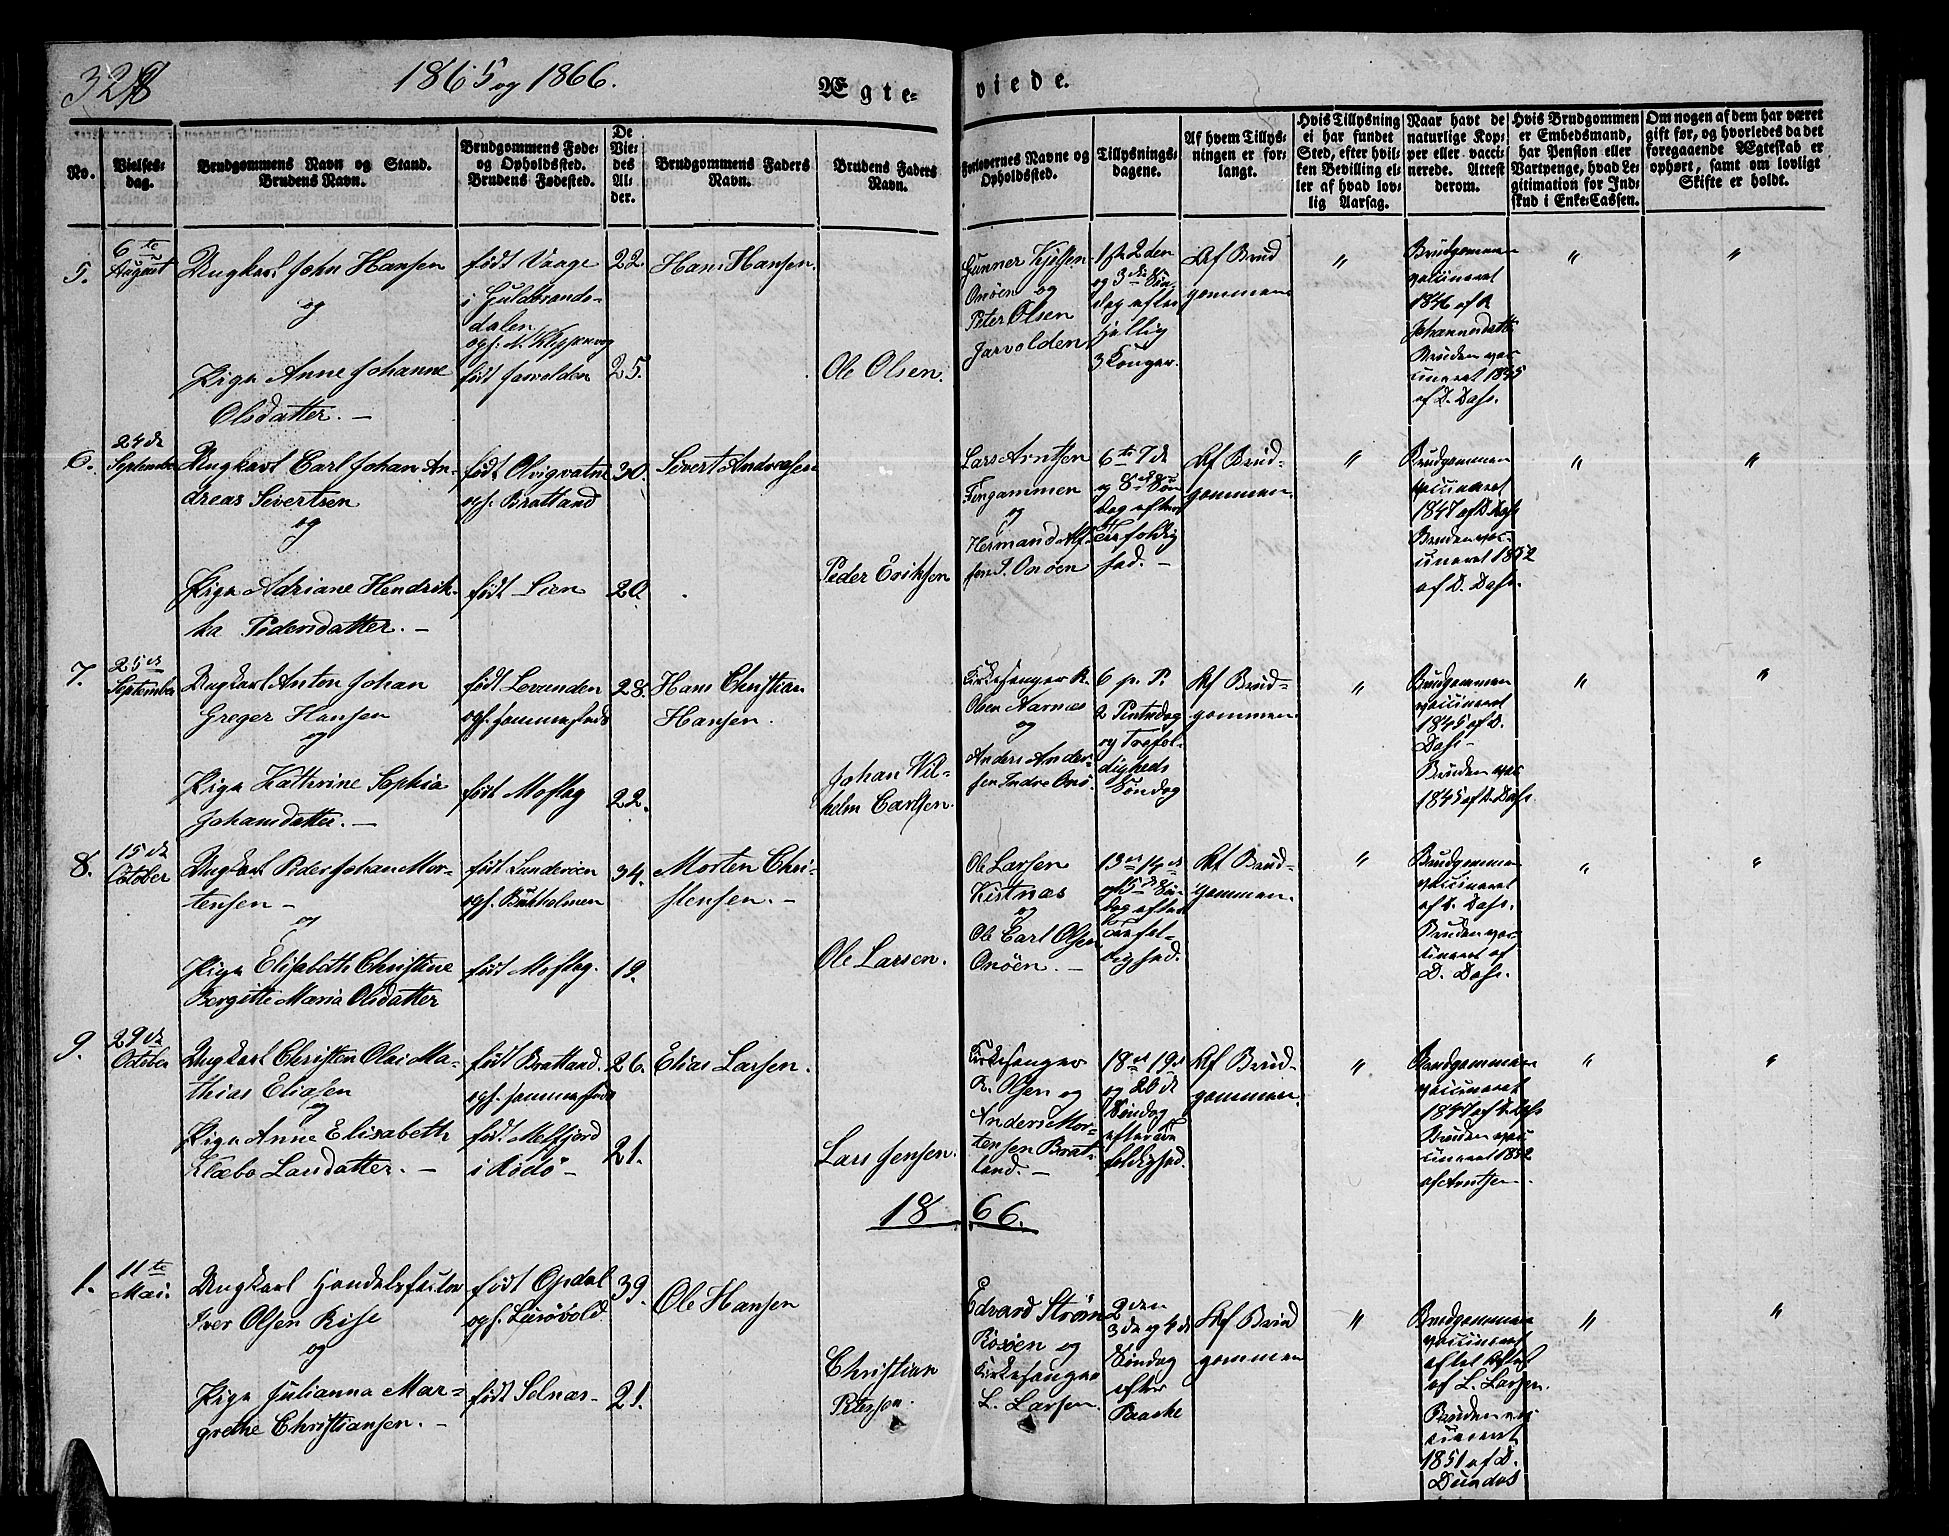 328
1865 og 1866.
Ægte-
viede.
No.
Vielses-
dag.
Brudgommens Navn og Stand.
Brudens Navn.
Brudgommens Føde-
og Opholdssted.
Brudens Fødested.
De
Vie-
des
Al-
der.
Brudgommens Faders
Navn.
Brudens Faders
Navn.
Forlovernes Navne og
Opholdssted.
Tillysnings-
dagene.
Af hvem Tillys-
ningen er for-
langt.
Hvis Tillysning
ei har fundet
Sted, efter hvil-
ken Bevilling el-
ler af hvad lov-
lig Aarsag.
Naar havt de
naturlige Kop-
per eller vacci-
nerede. Attest
derom.
Hvis Brudgommen
er Embedsmand,
har Pension eller
Vartpenge, hvad Le-
gitimation for Ind-
skud i Enke-Cassen.
Om nogen af dem har været
gift før, og hvorledes da det
foregaaende Ægteskab er
ophørt, samt om lovligt
Skifte er holdt.
5.
6te
August
Ungkarl John Hansen
og
Pige Anne Johanne
Olsdatter. —
født Vaage
i Guldbrands-
dalen
født Jarvolden
22.
25.
Hans Hansen.
Ole Olsen.
Gunner
Onøen og
Peter Olsen
Jarvolden
1ste 2den
og 3die Søn-
dag efter
Hellig
3 Konger.
Af Brud
gommen
"
Brudgommen
vaccineret
1846 af
Johannesdatter
Bruden vac-
cineret 1845
af D. Dass.
"
"
6.
24de
September
Ungkarl Carl Johan An-
dreas Sivertsen
og
Pige Adriane Hendrik-
ka Pedersdatter. —
født
oph. Bratland
født Lien
30.
20.
Sivert Andreasen
Peder Eriksen
Lars Arntsen
Fingammen
og
Hermand
sen I. Onøen
6te 7de
og 8de Søn
dag efter
Trefoldig
hed. —
Af Brud-
gommen.
"
Brudgommen
vaccineret
1847 af D. Dass
Bruden vac-
cineret 1852
af D. Dass.
"
"
7.
25de
September
Ungkarl Anton Johan
Greger Hansen
og
Pige Kathrine Sophia
Johansdatter. —
født Lovunden
født Mofleg
28.
22.
Hans Christian
Hansen.
Johan Wil-
helm Carlsen.
Kirkesanger R.
Olsen Aarnæs
og
Anders Ander-
sen Indre Onø.
6 p. P.
2 Pintsedag
og Trefol-
digheds
Søndag
Af Brud-
gommen.
"
Brudgommen
vaccineret
1845 af D.
Dass —
Bruden vac
1845 af D. Dass.
"
"
8.
15de
October
Ungkarl Peder Johan Mor-
tensen —
og
Pige Elisabeth Christine
Bergitte Maria Olsdatter
født Sunderøen
født Mofleg.
34.
19.
Morten Chri-
stensen. —
Ole Larsen.
Ole Larsen
Kistnæs
og
Ole Carl Olsen
Onøen. —
13de 14de
og 15de Søn-
dag efter
Trefol-
dighed.
Af Brud-
gommen.
"
Brudgommen
vaccineret
af D. Dass.
Bruden vac-
cineret af
D. Dass.
"
"
9.
29de
October
Ungkarl Christen Olai Ma-
thias Eliasen
og
Pige Anne Elisabeth
Klæbo Larsdatter. —
født Bratland.
født Melfjord
i Rødø —
26.
21.
Elias Larsen.
Lars Jensen.
Kirkesanger
R. Olsen og
Anders Mor-
tensen Brat-
land. —
18de 19de
og 20de
Søndag
efter Tre
foldighed.
Af Brud-
gommen.
"
Brudgommen
vaccineret
1847 af D. Dass
Bruden vac
cineret 1852
af Arntsen.
"
"
1866.
1.
11te
Mai.
Ungkarl Handelsfuldm.
Iver Olsen Rise
og
Pige Julianna Mar-
grethe Christiansen. —
født Opdal
oph. Lurøvold
født Selnæs —
39.
21.
Ole Hansen
Christian
Petersen.
Edvard Strøm
Rosøen og
Kirkesanger
L. Larsen.
2den
3de og 4de
Søndag
efter
Paaske
Af Brud
gommen
"
Brudgommen
vaccineret
efter Attest
af L. Larsen.
Bruden vac
cineret
1851 af D.
Dundas
"
"